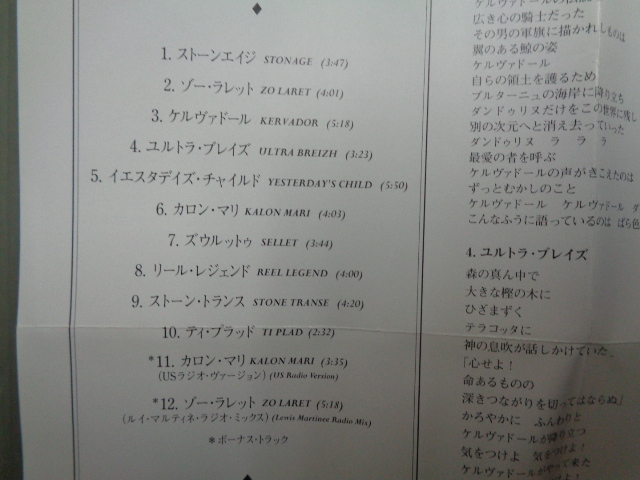 1. ストーンエイジ STONAGE (3:47)
2. ゾー・ラレット ZO LARET (4:01)
3. ケルヴァドール KERVADOR (5:18)
4. ユルトラ・ブレイズ ULTRA BREIZH (3:23)
5. イエスタデイズ・チャイルド YESTERDAY'S CHILD (5:50)
6. カロン・マリ KALON MARI (4:03)
7. ズウルットゥ SELLET (3:44)
8. リール・レジェンド REEL LEGEND (4:00)
9. ストーン・トランス STONE TRANSE (4:20)
10. ティ・プラッド TI PLAD (2:32)
*11. カロン・マリ KALON MARI (3:35)
(USラジオ・ヴァージョン) (US Radio Version)
*12. ゾー・ラレット ZO LARET (5:18)
(ルイ・マルティネ・ラジオ・ミックス) (Lewis Martinee Radio Mix)
*ボーナス・トラック
広き心の騎士だった
その男の軍旗に描かれしものは
翼のある鯨の姿
ケルヴァドール
自らの領土を護るため
ブルターニュの海岸に降り立ち
ダンドゥリヌだけをこの世界に残し
別の次元へと消え去っていった
ダンドゥリヌ ラ ラ ラ
最愛の者を呼ぶ
ケルヴァドールの声がきこえたのは
ずっとむかしのこと
ケルヴァドール ケルヴァドール ダ
こんなふうに語っているのは ばら色
4. ユルトラ・ブレイズ
森の真ん中で
大きな樫の木に
ひざまずく
テラコッタに
神の息吹が話しかけていた、
「心せよ!
命あるものの
深きつながりを切ってはならぬ」
かろやかに ふんわりと
ケルヴァドールが降り立つ
気をつけよ 気をつけよ!
ケルヴァドールがやって来た